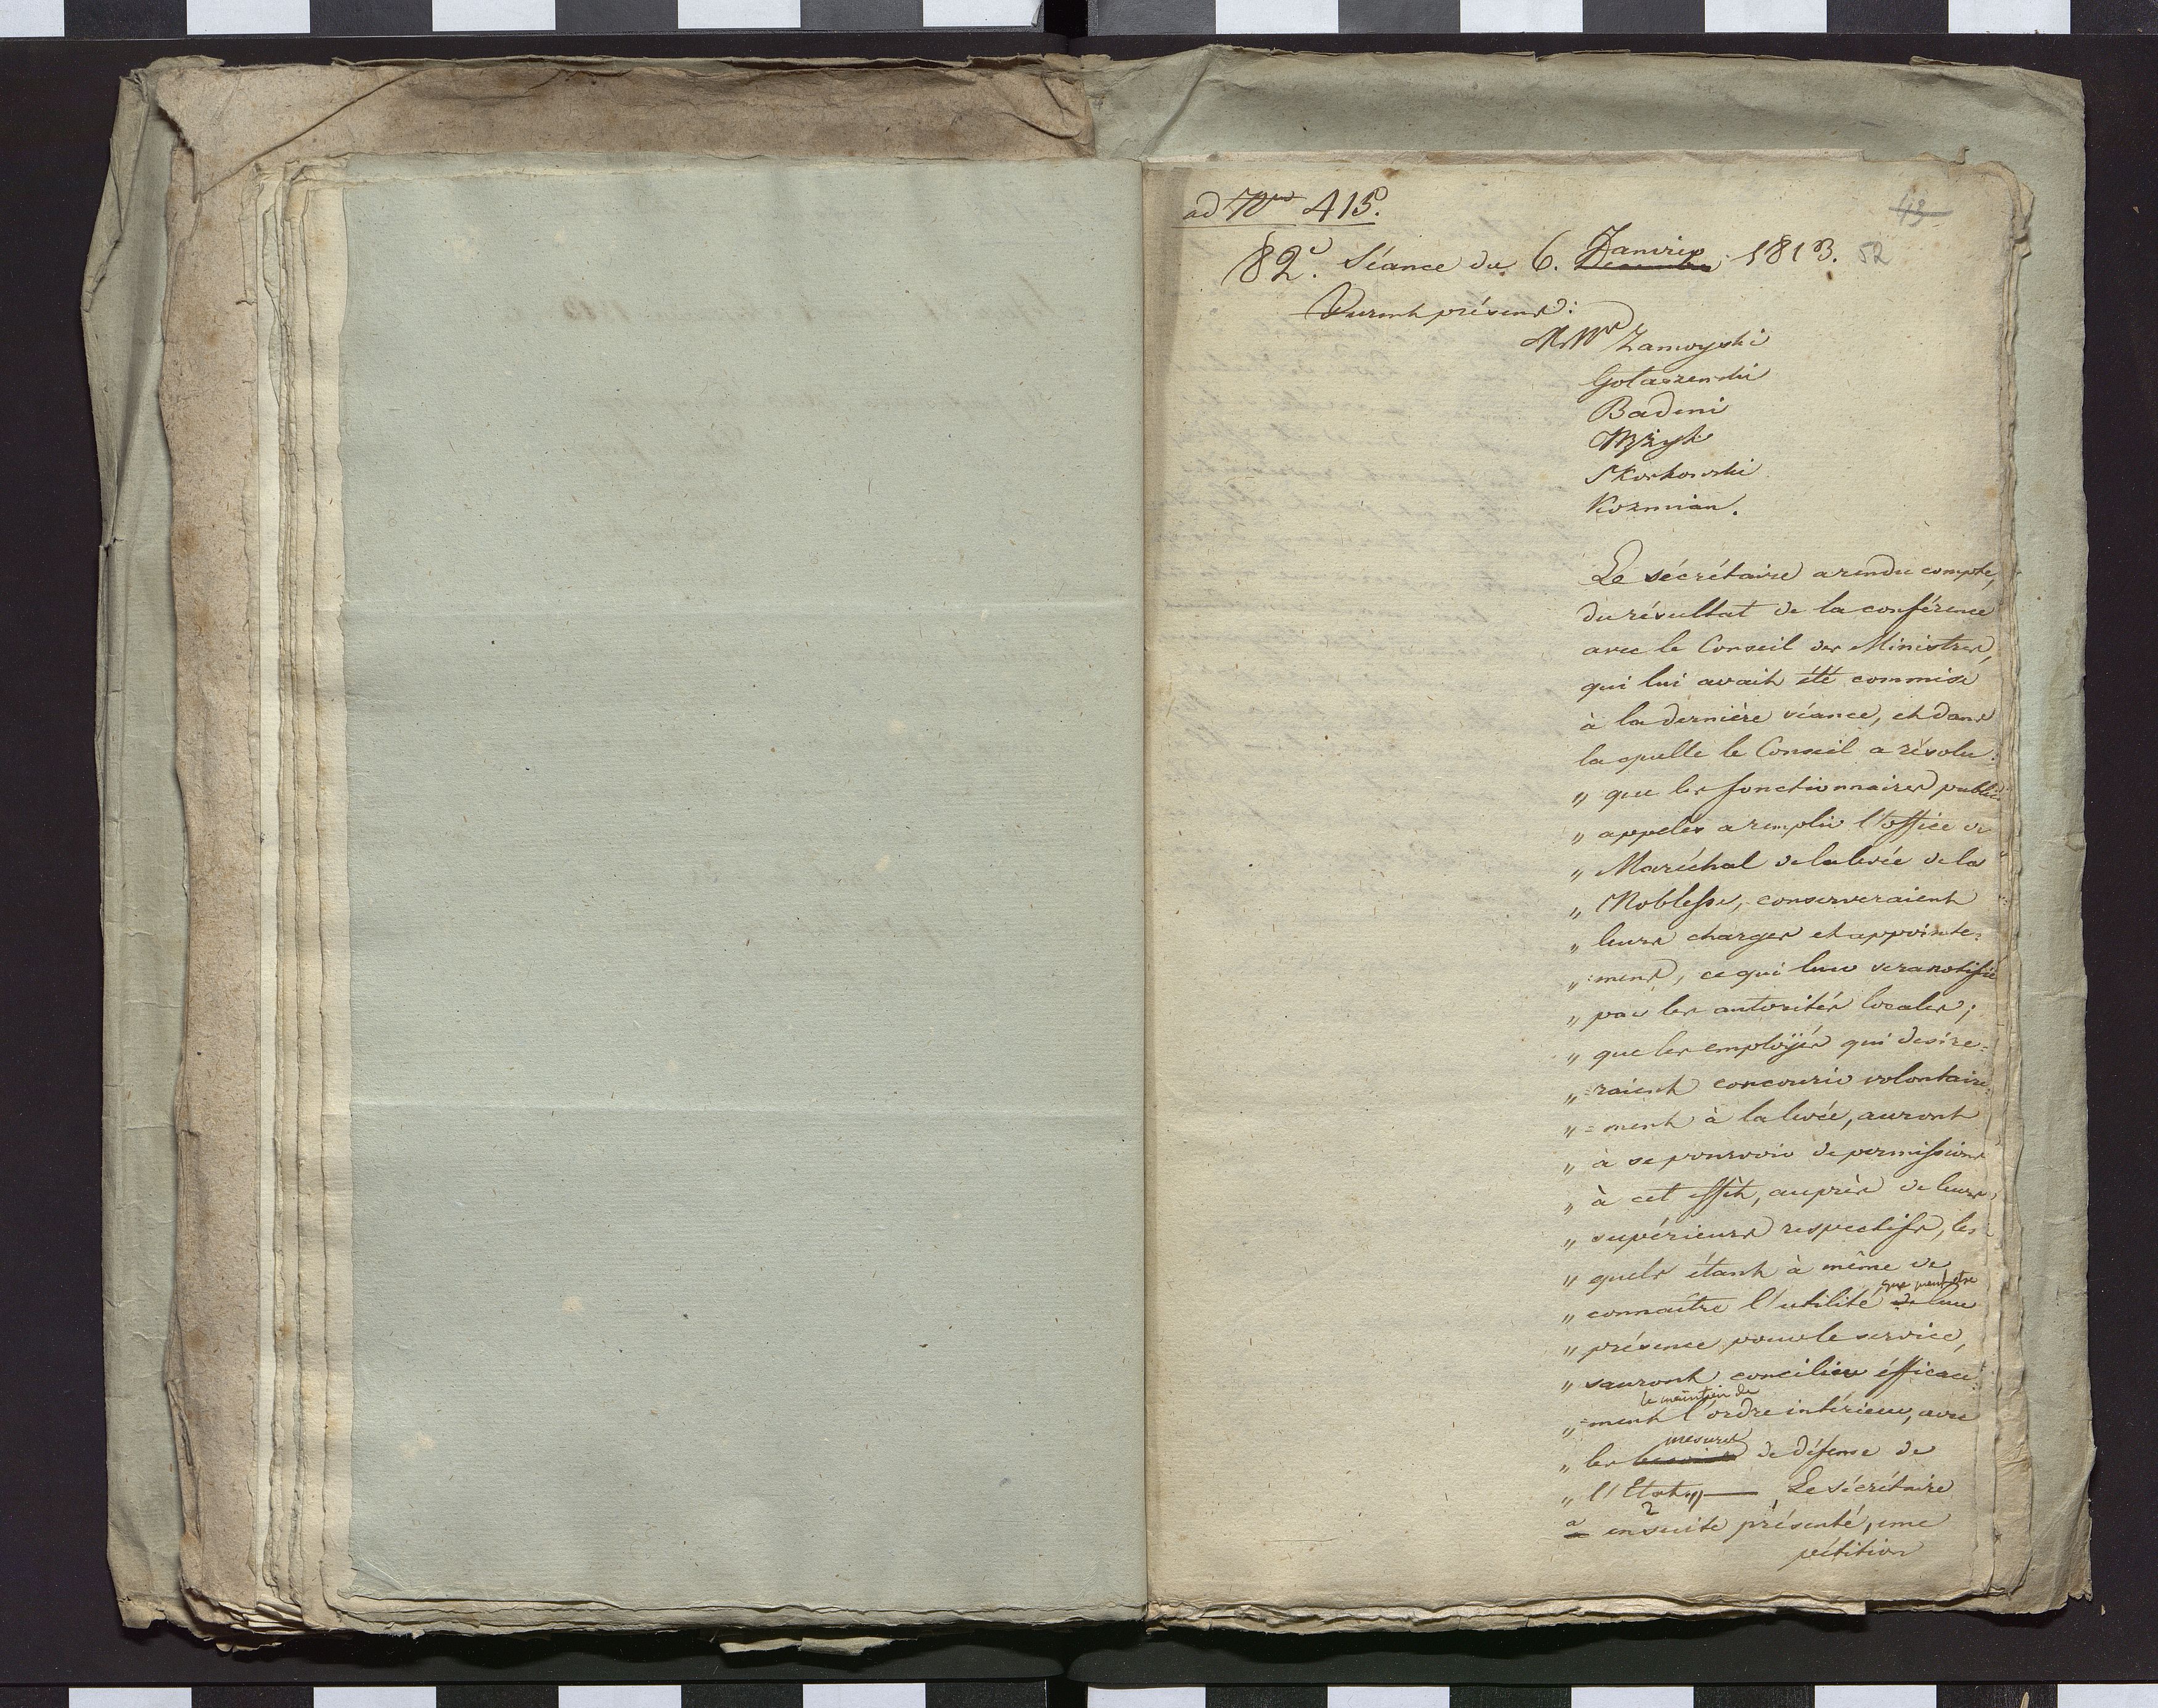 ad Nrus 415.
43
82e. Séance du 6. Janvier Decembre 1813. 52
Furent présens:
MMrs Zamoyski
Gołaszewski
Badeni
Wyżyk
Skorkowski
Kozmian.
Le sécrétaire a rendu compte,
du résultat de la conférence
avec le Conseil des Ministres,
qui lui avait été commise
à la dernière séance, et dans
laquelle le Conseil a résolu:
„ que les fonctionnaires publics
„ appelés a remplir l'office de
„ Maréchal de la levée de la
„ Noblesse, conserveraient
„ leurs charges et appointe:
„ :mens, ce qui leur sera notifié
„ par les autorités locales;
„ que les employés qui desire=
„ =raient concourir volontaire=
„ =ment à la levée, auront
„ à se pourvoir de permissions
„ à cet effèt, auprès de leurs
„ supérieurs respectifs, les
„ quels étant à même de
que peut etre
„ connaître l'utilité de leur
„ présence pour le service,
„ sauront concilier éfficace=
le maintien de
„ =ment l'ordre intérieur, avec
mesures
„ les besoins de défense de
„ l'Etat„ — Le sécrétaire
a ensuite présenté, une
pétition